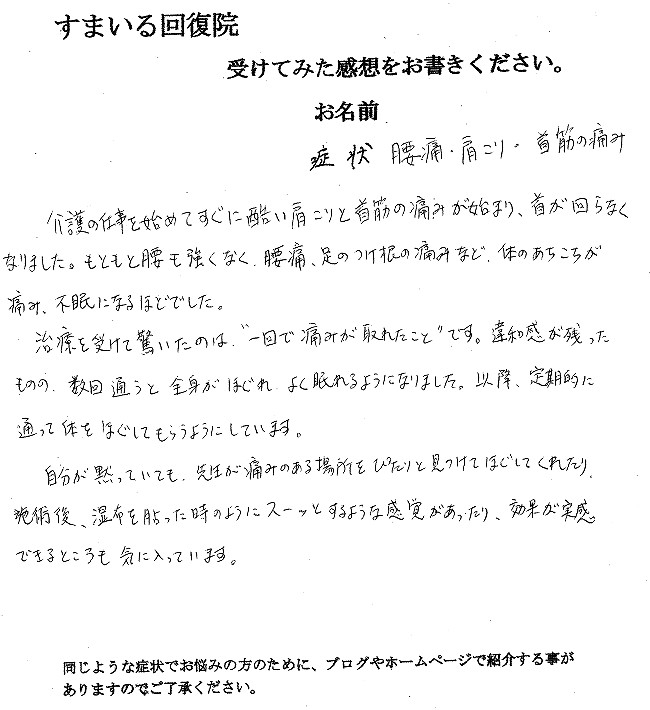 すまいる回復院
受けてみた感想をお書きください。
お名前
症状 腰痛・肩こり・首筋の痛み
介護の仕事を始めてすぐに酷い肩こりと首筋の痛みが始まり、首が回らなく
なりました。もともと腰も強くなく、腰痛、足のつけ根の痛みなど、体のあちこちが
痛み、不眠になるほどでした。
治療を受けて驚いたのは、"一回で痛みが取れたこと"です。違和感が残った
ものの、数回通うと全身がほぐれ、よく眠れるようになりました。以降、定期的に
通って体をほぐしてもらうようにしています。
自分が黙っていても、先生が痛みのある場所をぴたりと見つけてほぐしてくれたり、
施術後、湿布を貼った時のようにスーッとするような感覚があったり、効果が実感
できるところも気に入っています。
同じような症状でお悩みの方のために、ブログやホームページで紹介する事が
ありますのでご了承ください。